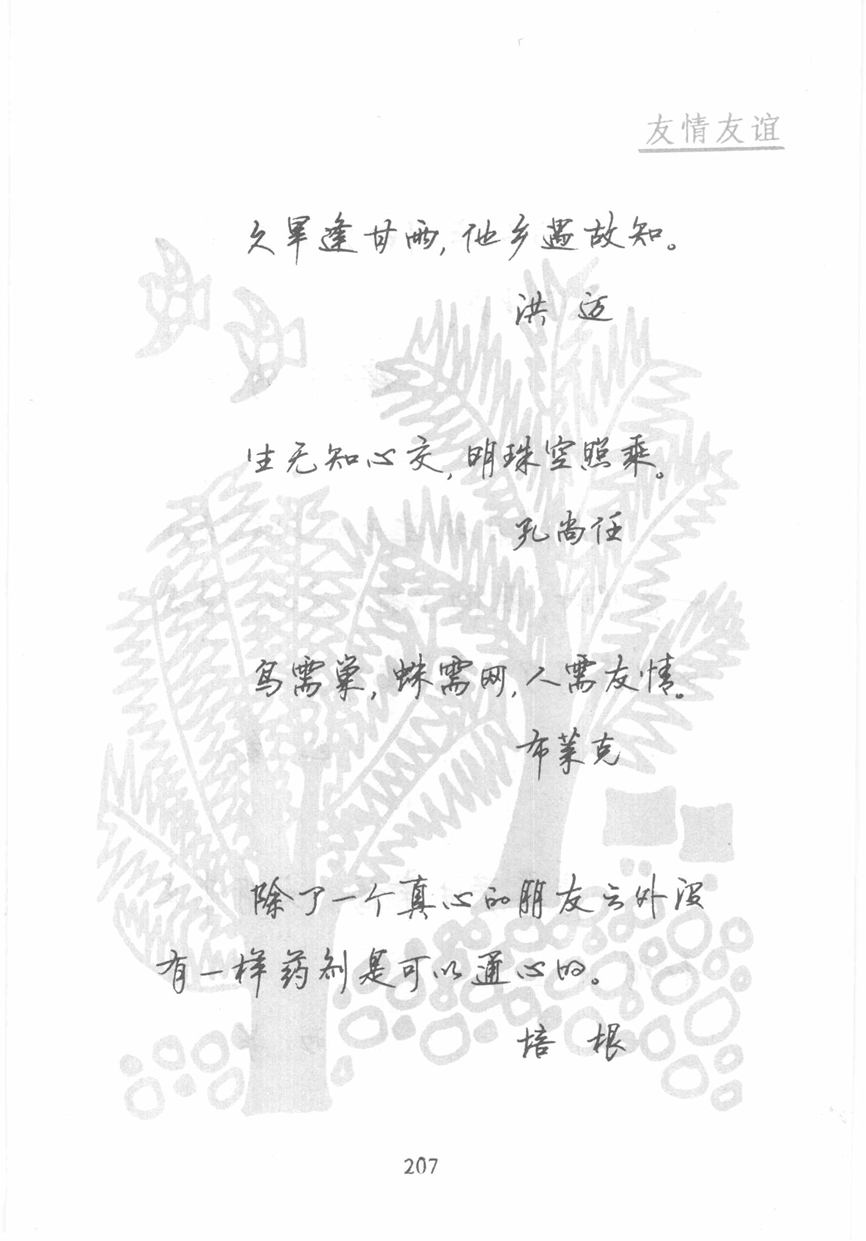 友情友谊
久旱逢甘雨,他乡遇故知。
洪 迈
生无知心交,明珠空照乘。
孔尚任
鸟需巢,蛛需网,人需友情。
布莱克
除了一个真心的朋友之外没
有一样药剂是可以通心的。
培 根
207